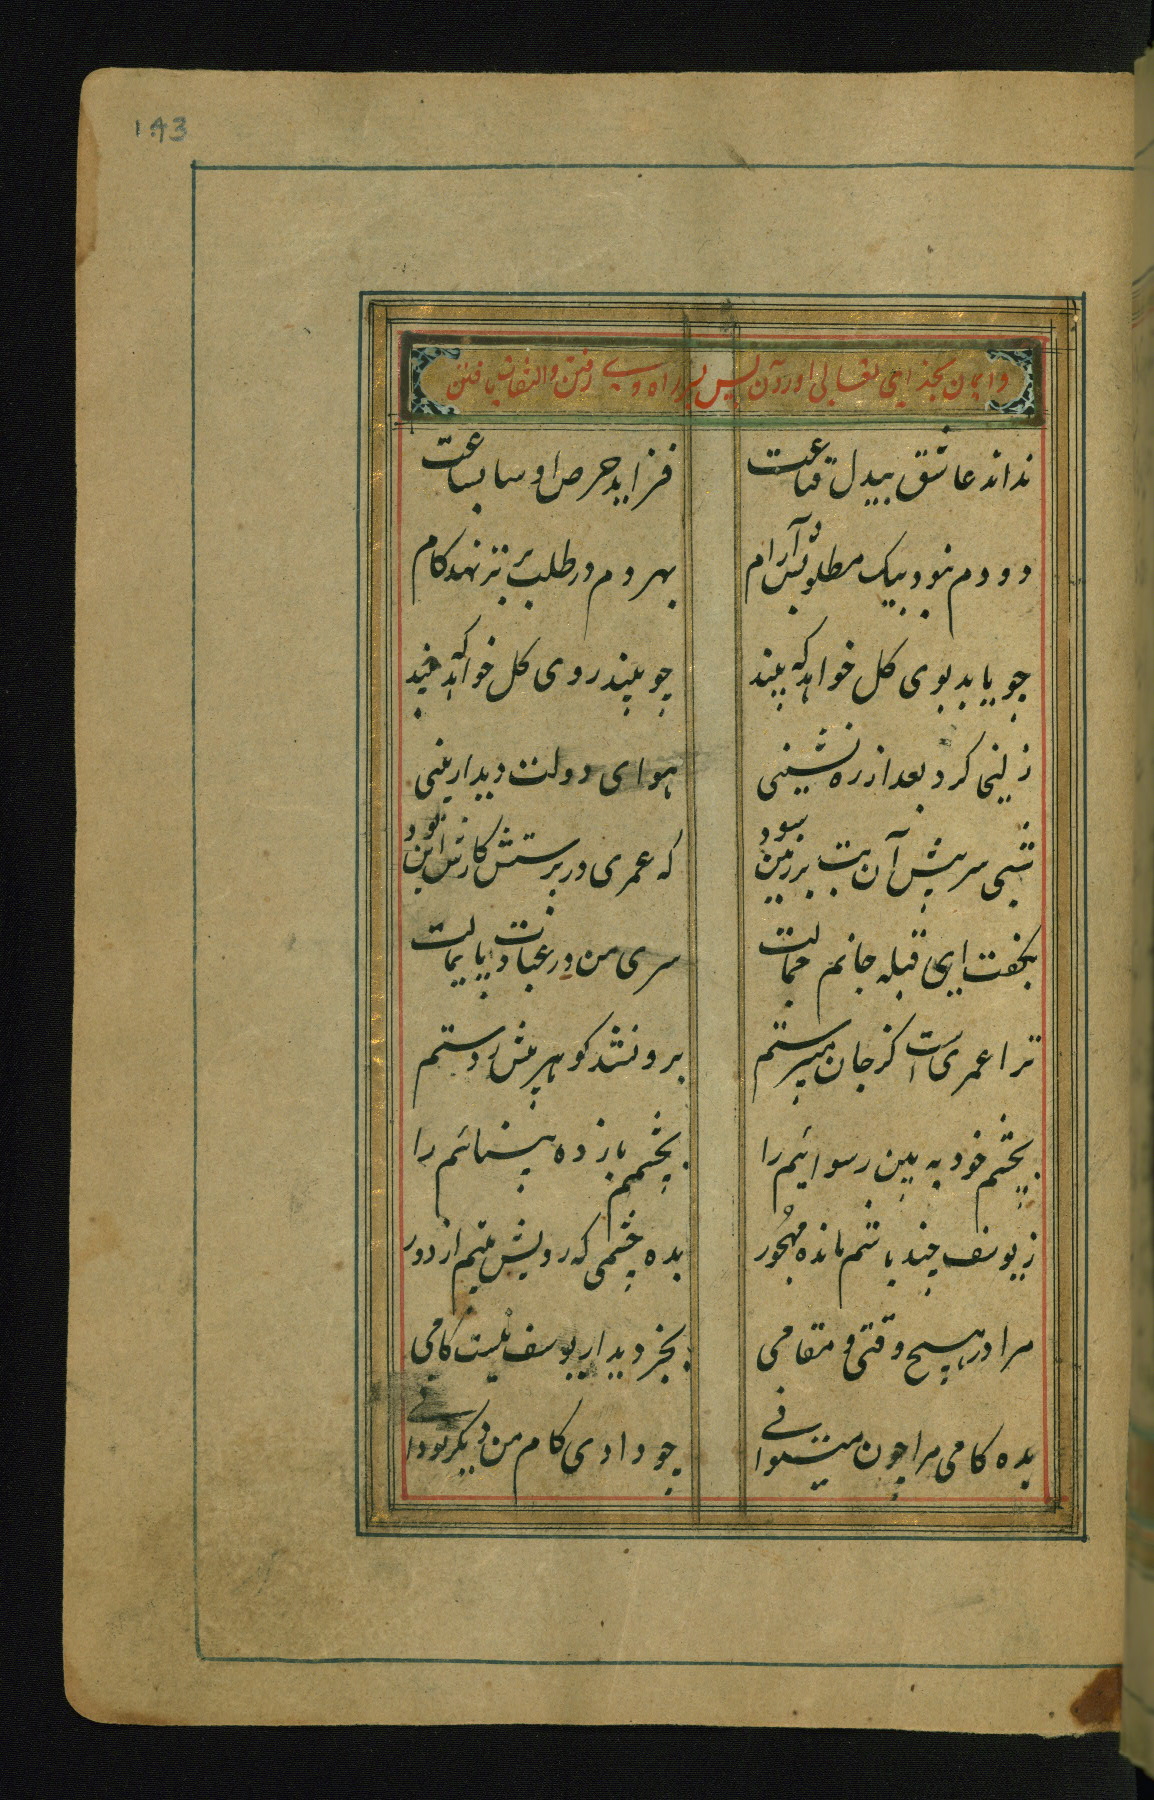 143
وایمان بخدای تعالی اوردن پس بر راه وی رفتن والتفات یافتن
نداند عاشق بیدل قناعت
فزاید حرص او ساعت بساعت
دو دم نبود بیک مطلوبش آرام
بهر دم در طلب برتر نهد کام
چو یابد بوی کل خواهد که بیند
چو بیند روی کل خواهد که چیند
زلیخا کرد بعد از ره نشینی
هوای دولت دیدار بینی
شبی سر پیش آن بت بر زمین سود
که عمری در پرستش کارش این بود
بکفت ای قبله جانم جمالت
سری من در عبادت پایمالت
ترا عمریست کز جان میپرستم
برون شد کوهر بینش ز دستم
بچشم خود به بین رسوائیم را
بچشمم باز ده بینائیم را
ز یوسف چند باشم مانده مهجور
بده چشمی که رویش بینم از دور
مرا در هیچ وقتی و مقامی
بجز دیدار یوسف نیست کامی
بده کامی مرا چون میتوانی
چو دادی کام من دیکر تو دانی